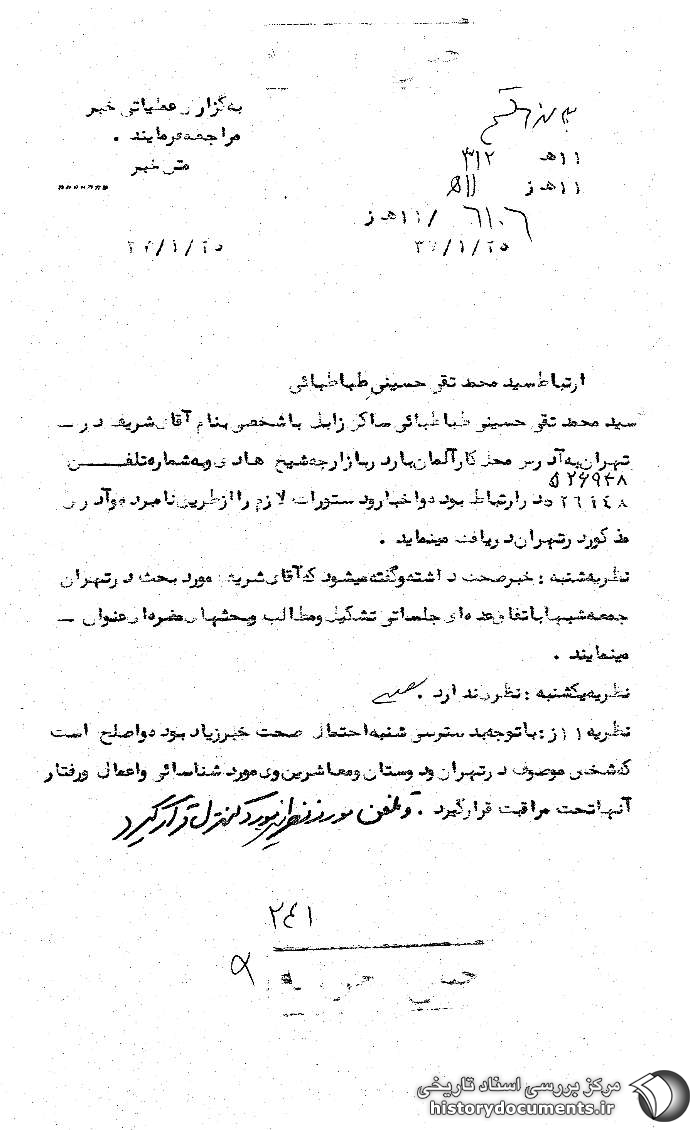 به گزارش عملیاتی خبر
مراجعه فرمایند .
متن خبر
۱۱ هـ ۳۱۲
۱۱ هـ ز ۱۱ هـ
۶۱۰۶ / ۱۱ هـ ز
۲۵ / ۱ / ۳۷
۲۵ / ۱ /
ارتباط سید محمد تقی حسینی طباطبائی
سید محمد تقی حسینی طباطبائی ساکن زابل با شخصی بنام آقای شریف در –
تهران به آدرس محل کار آلمان بارد ربازارجه شیخ هادی وبه شماره تلفن
۵۲۶۹۴۸
۵۲۶۹۴۸ در ارتباط بوده واخبار ودستورات لازم را از طریق نامبرده وآدرس
مذکور در تهران دریافت مینماید .
نظریه شنبه : خبر صحت داشته وگفته میشود که آقای شریف مورد بحث در تهران
جمعه شبها باتفاق عده ای جلساتی تشکیل ومطالب وبحثهای مضره ای عنوان –
مینمایند .
نظریه یکشنبه : نظری ندارد .
نظریه ۱۱ ز : با توجه بدسترسی شنبه احتمال صحت خبر زیاد بوده واصلح است
که شخص موصوف در تهران ودوستان ومعاشرین وی مورد شناسائی واعمال ورفتار
آنها تحت مراقبت قرار گیرد . و تلفن مورد نظر نیز مورد کنترل قرار گیرد
۲۴۱
مرکز بررسی اسناد تاریخی
historydocuments.ir